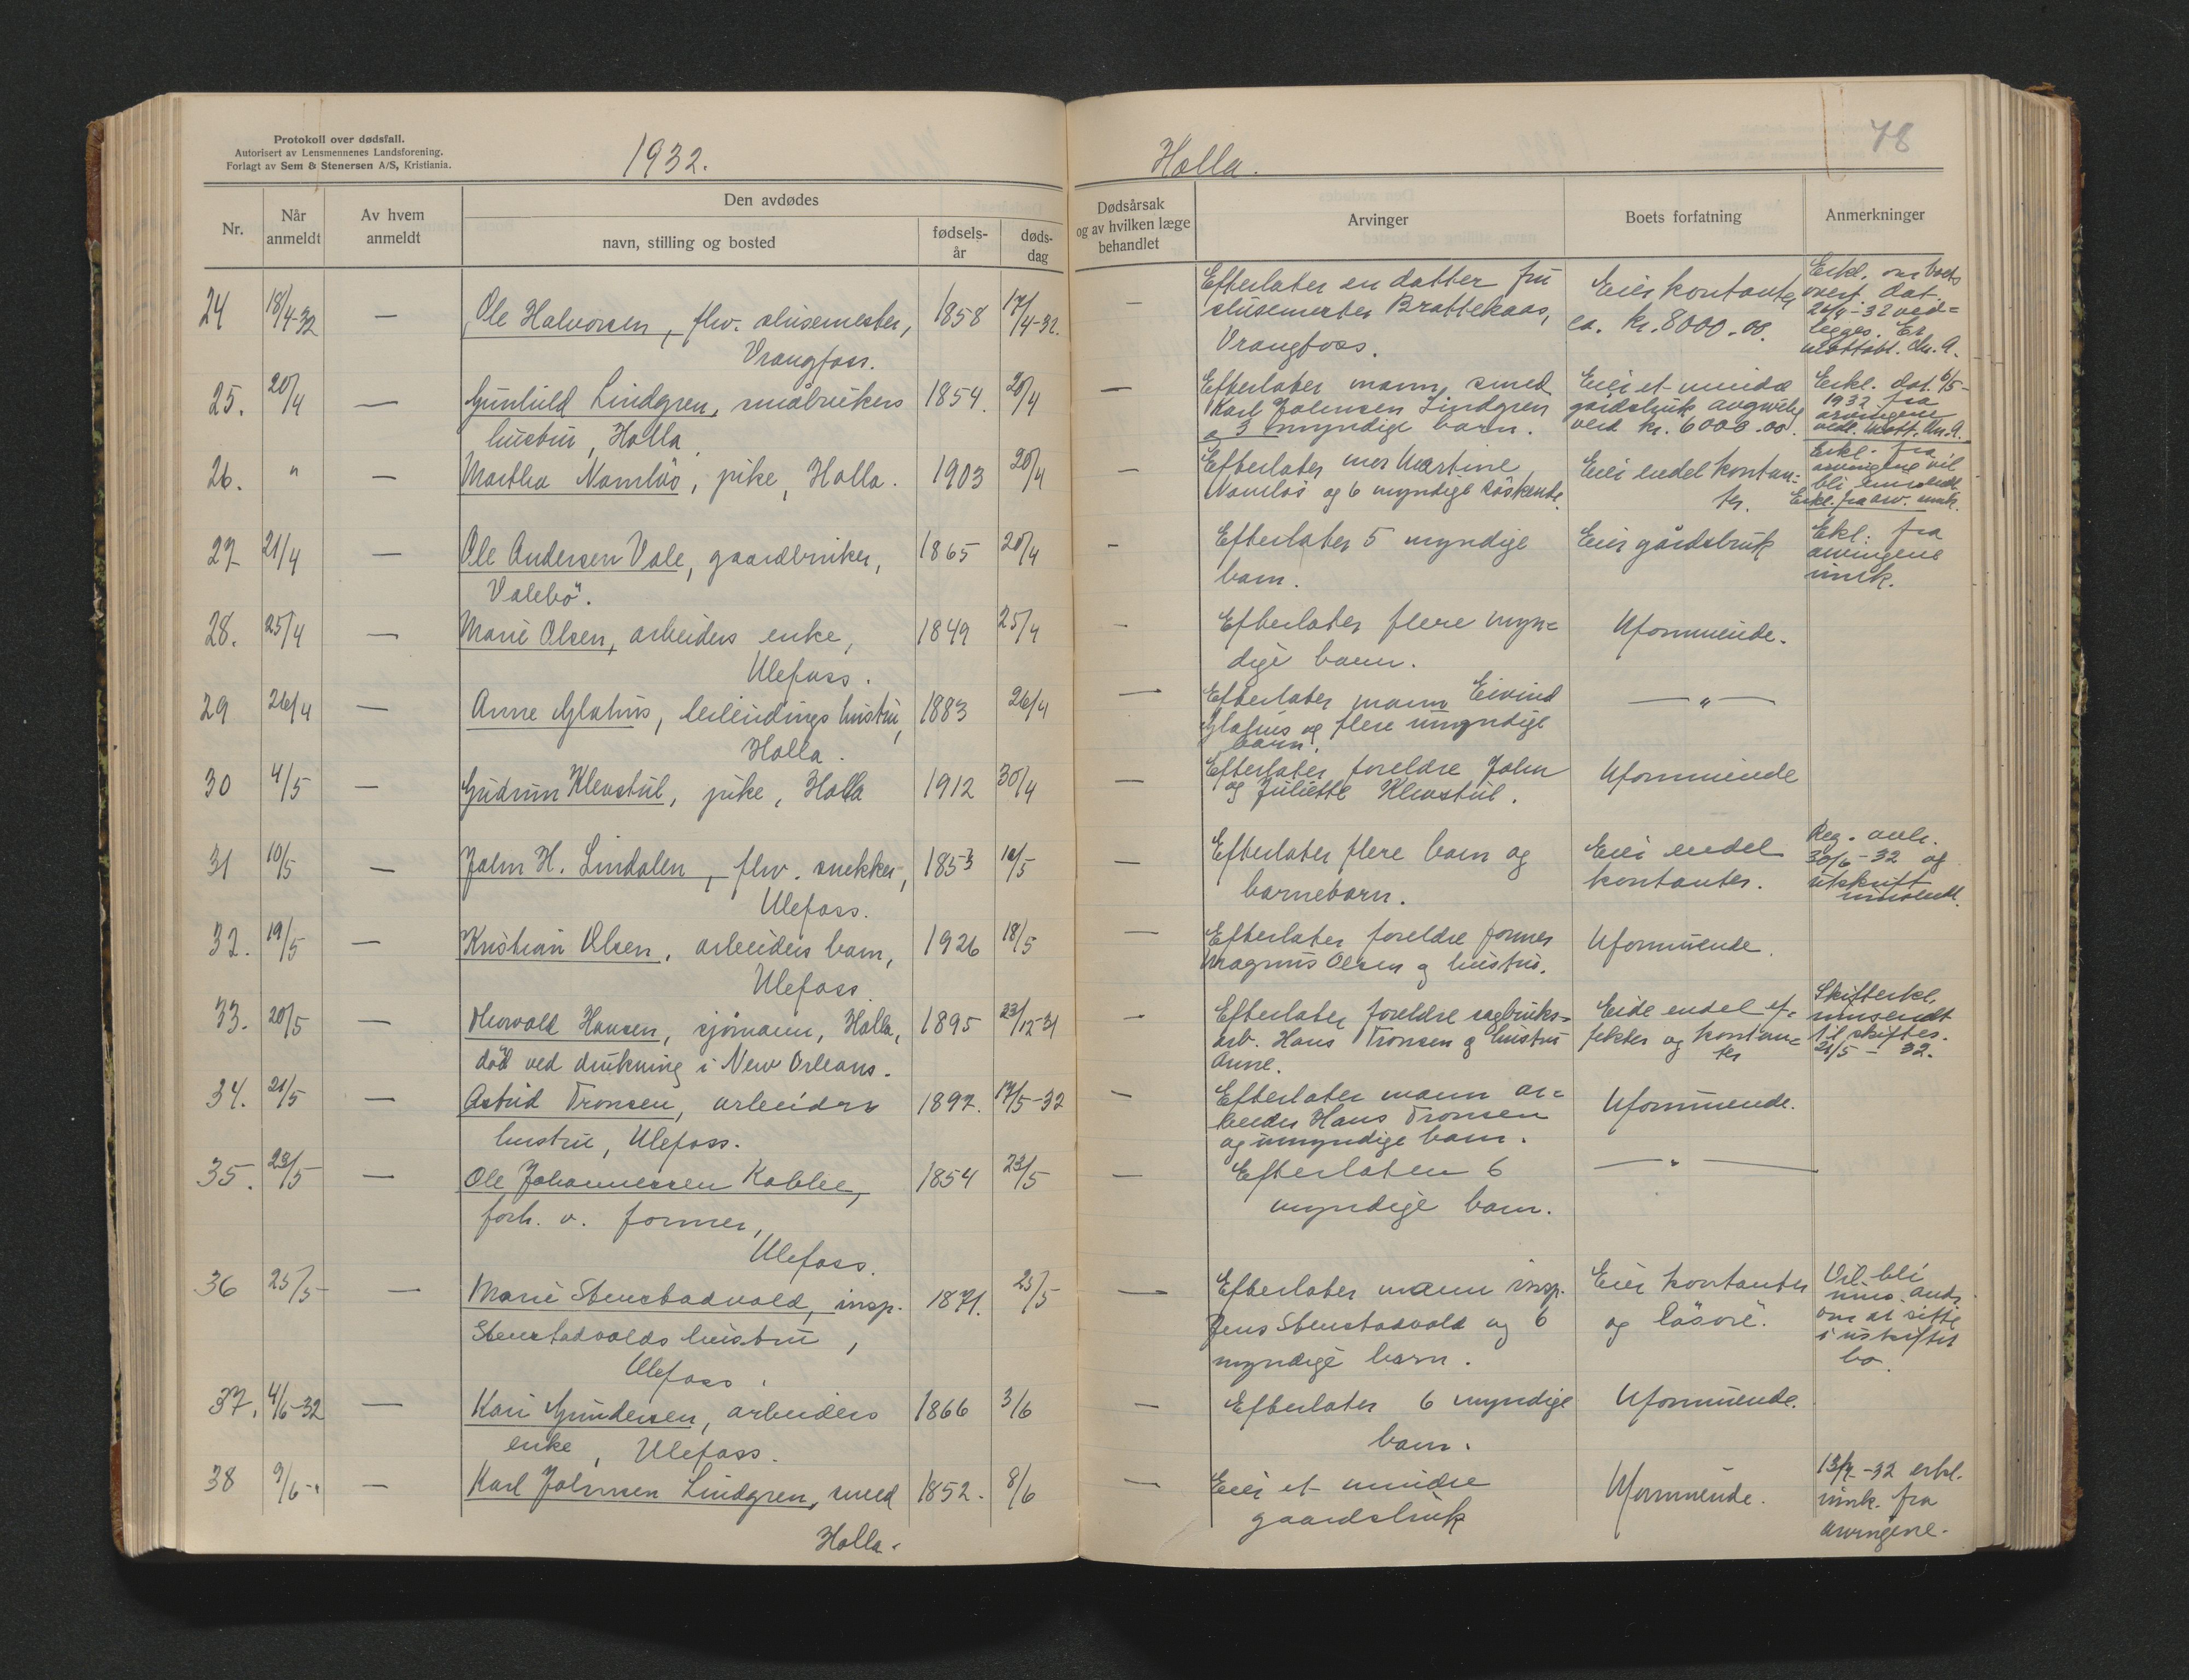 Protokoll over dødsfall.
Autorisert av Lensmennenes Landsforening.
Forlagt av Sem & Stenersen A/S, Kristiania.
1932.
Holla.
78
Nr.
Når anmeldt
Av hvem anmeldt
Den avdødes
navn, stilling og bosted
fødsels-år
døds-dag
Dødsårsak og av hvilken læge behandlet
Arvinger
Boets forfatning
Anmerkninger
24 18/4-32 — Ole Halvorsen, fhv. slusemester, 1858 17/4-32.
Vrangfoss.
— Efterlater en datter fru
slusemester Brattekaas,
Vrangfoss.
Eier kontanter
ca. kr. 8000.00.
Erkl. om boets
overt. dat.
25. 20/4 — Gunhild Lindgren, småbrukers 1854. 20/4
hustru, Holla
— Efterlater mann, smed
Karl Johnsen Lindgren
og 3 myndige barn.
Eier et mindre
gårdsbruk
verd kr. 6000.00.
Erkl. dat. 6/5-
1932 fra
arvingene
26. " — Martha Namløs, pike, Holla. 1903 20/4
— Efterlater mor Martine
Namløs og 6 myndige søskende.
Eier endel kontan-
ter.
Erkl. fra
arvingene vil
bli innsendt
Erkl. fra arv. innk.
27 21/4 — Ole Andersen Vale, gaardbruker, 1865 20/4
Valebö.
- Efterlater 5 myndige
barn.
Eier gårdsbruk
Ekl. fra
arvingene
innk.
28. 25/4 — Marie Olsen, arbeiders enke, 1849 25/4
Ulefoss.
- Efterlater flere myn-
dige barn.
Uformuende.
29 26/4 — Anne Glahus, leilendings hustru, 1883 26/4
Holla.
— Efterlater mann Eivind
Glahus og flere umyndige
barn.
— " —
30 4/5 — Gudrun Klevstul, pike, Holla 1912 30/4
— Efterlater foreldre John
og Juliette Klevstul.
Uformuende
31 10/5 — John H. Lindalen, fhv. snekker, 1853 10/5
Ulefoss.
— Efterlater flere barn og
barnebarn.
Eier endel
kontanter.
Reg. avh.
30/6-32 og
utskrift
innsendt.
32. 19/5 — Kristian Olsen, arbeiders barn, 1926 18/5
Ulefoss.
— Efterlater foreldre former
Magnus Olsen og hustru.
Uformuende.
33. 20/5 — Thorvald Hansen, sjömann, Holla, 1895 23/12-31
död ved drukning i New Orleans.
- Efterlater foreldre sagbruks-
arb. Hans Tronsen og hustru
Anne.
Eide endel ef-
fekter og kontan-
ter
Skifterkl.
innsendt
til skifter.
21/5 - 32.
34. 21/5 — Astrid Tronsen, arbeiders 1892. 17/5-32
hustru, Ulefoss.
— Efterlater mann ar-
beider Hans Tronsen
og umyndige barn.
Uformuende.
35. 23/5 — Ole Johannessen Kablie, 1854 22/5
forh. v. former,
Ulefoss.
— Efterlater 6
myndige barn.
— " —
36 25/5 — Marie Stenstadvold, insp. 1871. 25/5
Stenstadvolds hustru,
Ulefoss.
— Efterlater mann insp.
Jens Stenstadvold og 6
myndige barn.
Eier kontanter
og lösöre.
Vil bli
inns. ands.
om at sitte
i uskiftet
bo.
37. 4/6-32 — Kari Gundersen, arbeiders 1866 3/6
enke, Ulefoss.
— Efterlater 6 myndige
barn.
Uformuende.
38 9/6 - " — Karl Johnsen Lindgren, smed 1852. 8/6
Holla.
— Eier et mindre
gaardsbruk
Uformuende.
13/7-32 erkl.
innk. fra
arvingene.